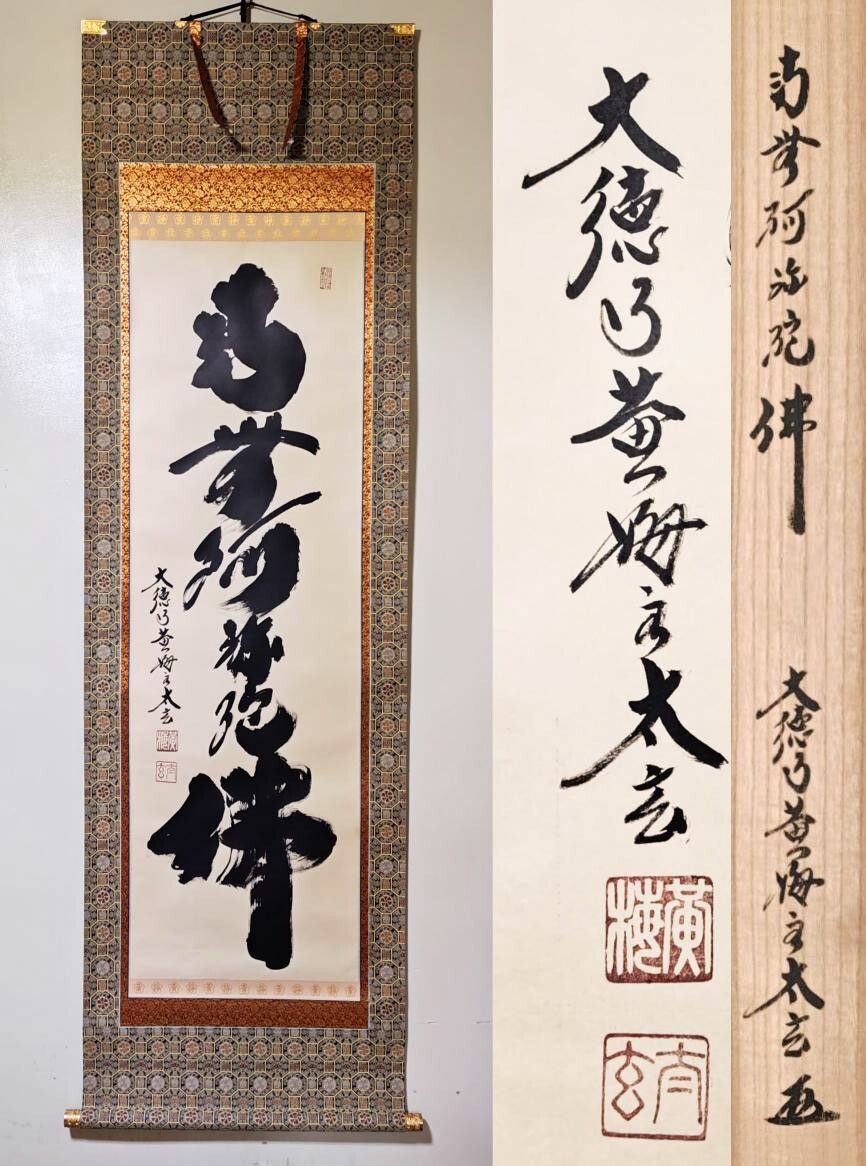 南無阿弥陀佛
大徳寺黄梅主太玄
黄梅
太玄
大徳寺黄梅主太玄
黄梅
太玄
南無阿弥陀佛
大徳寺黄梅主太玄